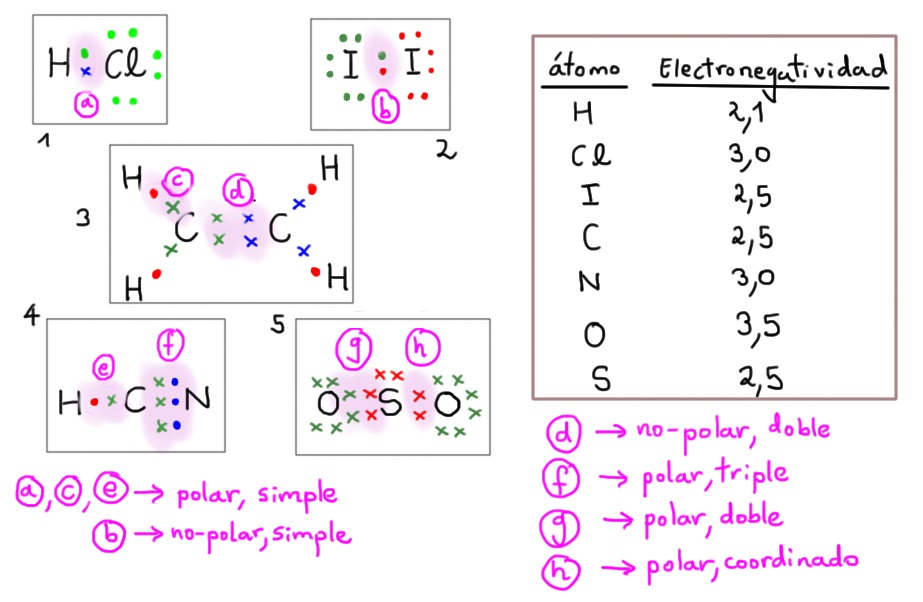 H Cl
a
1
I I
b
2
H c d H
3
C C
H H
4
f
e
H C N
5
g h
O S O
átomo Electronegatividad
H 2,1
Cl 3,0
I 2,5
C 2,5
N 3,0
O 3,5
S 2,5
a, c, e → polar, simple
b → no-polar, simple
d → no-polar, doble
f → polar, triple
g → polar, doble
h → polar, coordinado